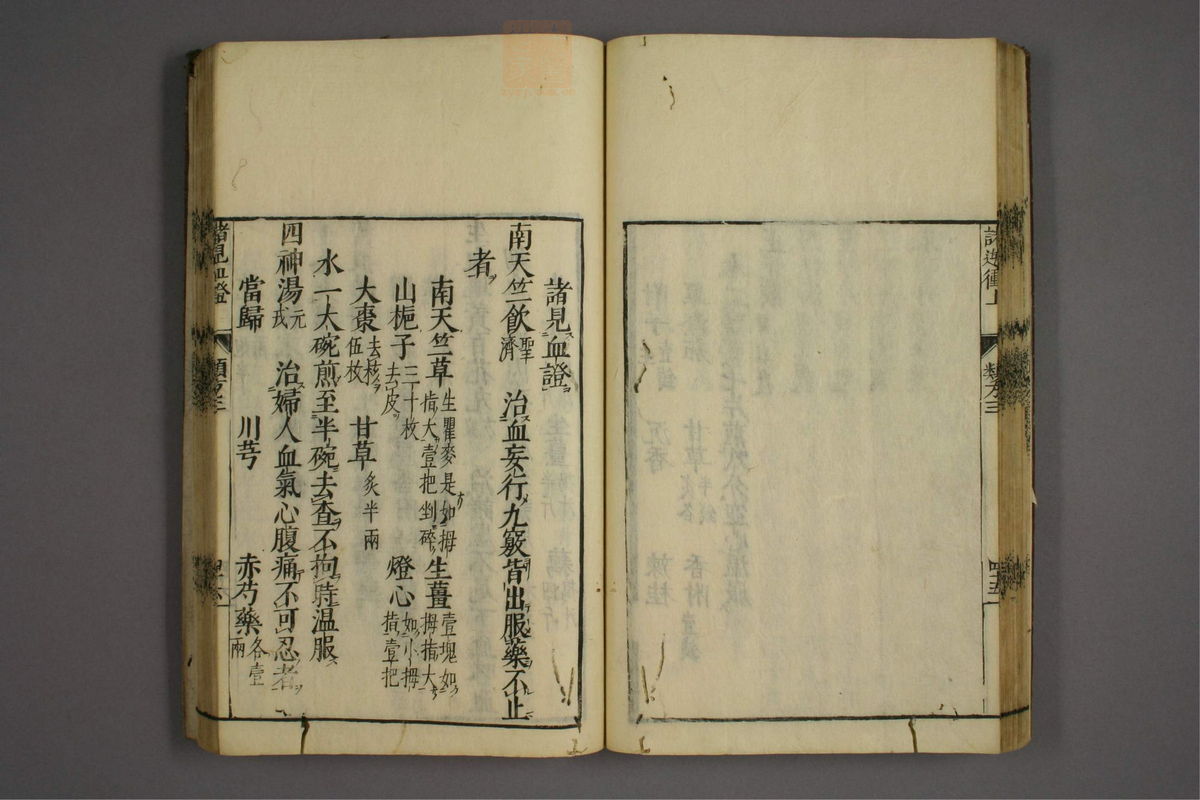 類方三
四十五
諸見血證
南天竺飲 聖濟 治血妄行九竅皆出服藥不止
者
南天竺草 生瞿麥是如拇指大壹把剉碎 生薑 壹塊如拇指大
山梔子 三十枚去皮 燈心 如小拇指壹把
大棗 去核伍枚 甘草 炙半兩
水一大碗煎至半碗去査不拘時温服
四神湯 元戎 治婦人血氣心腹痛不可忍者
當歸 川芎 赤芍藥 各壹兩
諸見血證
類方三
四十六